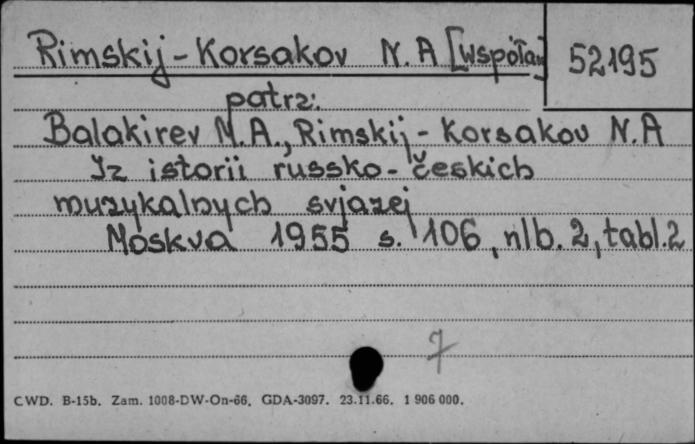 Rimskij-Korsakov N. A [Współau]
52195
patrz:
Balakirev M.A., Rimskij-Korsakov N.A
Iz istorii russko-českich
muzykalnych svjazej
Moskva 1955 s. 106, nlb. 2, tabl. 2
7
CWD. B-15b. Zam. 1008-DW-On-66. GDA-3097. 23.11.66. 1 906 000.